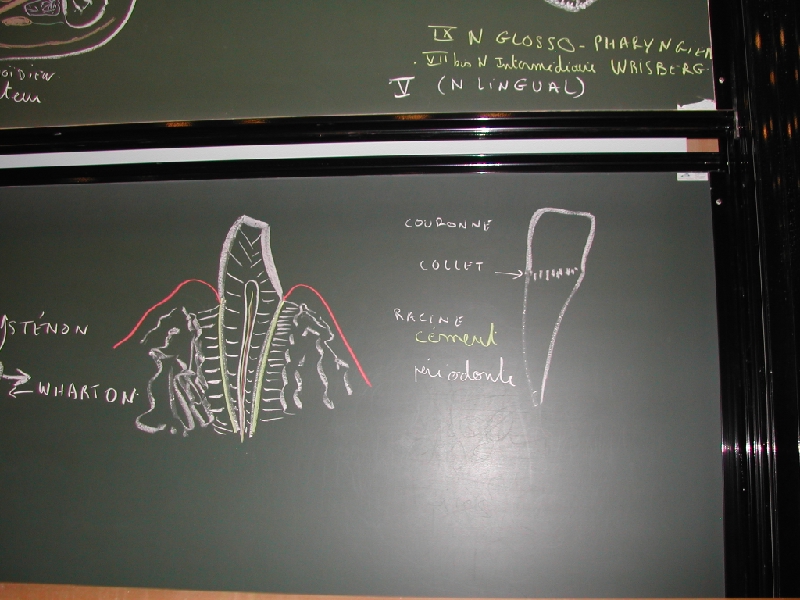 IX N GLOSSO-PHARYNGIEN
VII bis N Intermédiaire WRISBERG
V (N LINGUAL)
STÉNON
WHARTON
COURONNE
COLLET
RACINE
cément
périodonte